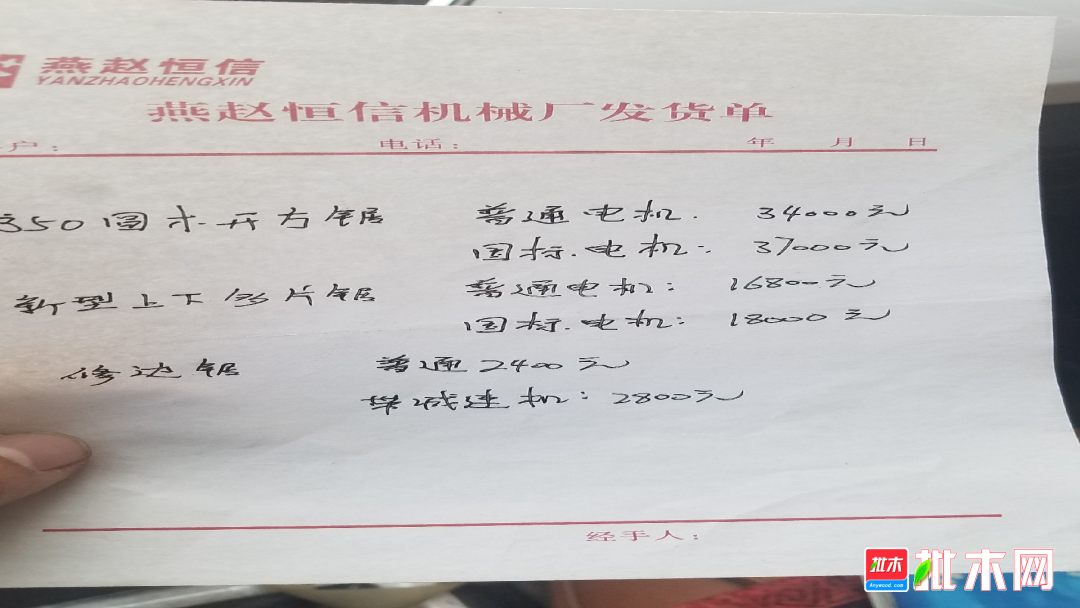 燕赵恒信
YANZHAOHENGXIN
燕赵恒信机械厂发货单
户： 电话： 年 月 日
350圆木开方锯 普通电机. 34000元
国标.电机： 37000元
新型上下多片锯 普通电机： 16800元
国标.电机： 18000元
修边锯 普通2400元
带减速机：2800元
经手人：
批木
Anywood.com
批木网